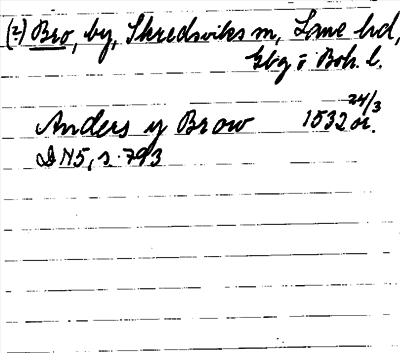 (2) Bro, by, Skredsviks sn, Lane hd,
Gbg o Boh. l.
Anders y Brow 1532 24/3 or.
DN5, s. 793